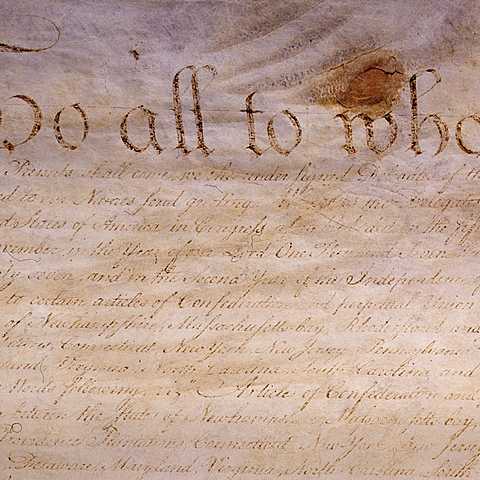 To all to who
Presents shall come, we the under signed Delegates of the
to our Names send greeting. Whereas the Delegates
States of America in Congress assembled did on the fif
November in the Year of our Lord One Thousand Seven
ty seven, and in the Second Year of the Independence
to certain articles of Confederation and perpetual Union
of Newhampshire, Massachusetts-bay, Rhodeisland and
Connecticut, New York, New Jersey, Pennsylvania
Virginia, North Carolina, South Carolina, and
Words following, viz. Articles of Confederation and
between the States of Newhampshire, Massachusetts-bay,
Providence Plantations, Connecticut, New York, New Jersey
Delaware, Maryland, Virginia, North Carolina, South